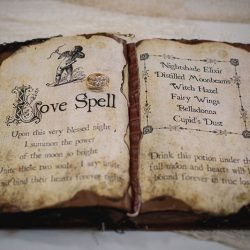 Love Spell
Upon this very blessed night
I summon the power
of the moon so bright
Unite these two souls, I say unite
and bind their hearts forever tight
Nightshade Elixir
Distilled Moonbeams
Witch Hazel
Fairy Wings
Belladonna
Cupid's Dust
Drink this potion under the
full moon and hearts will be
bound forever in true love